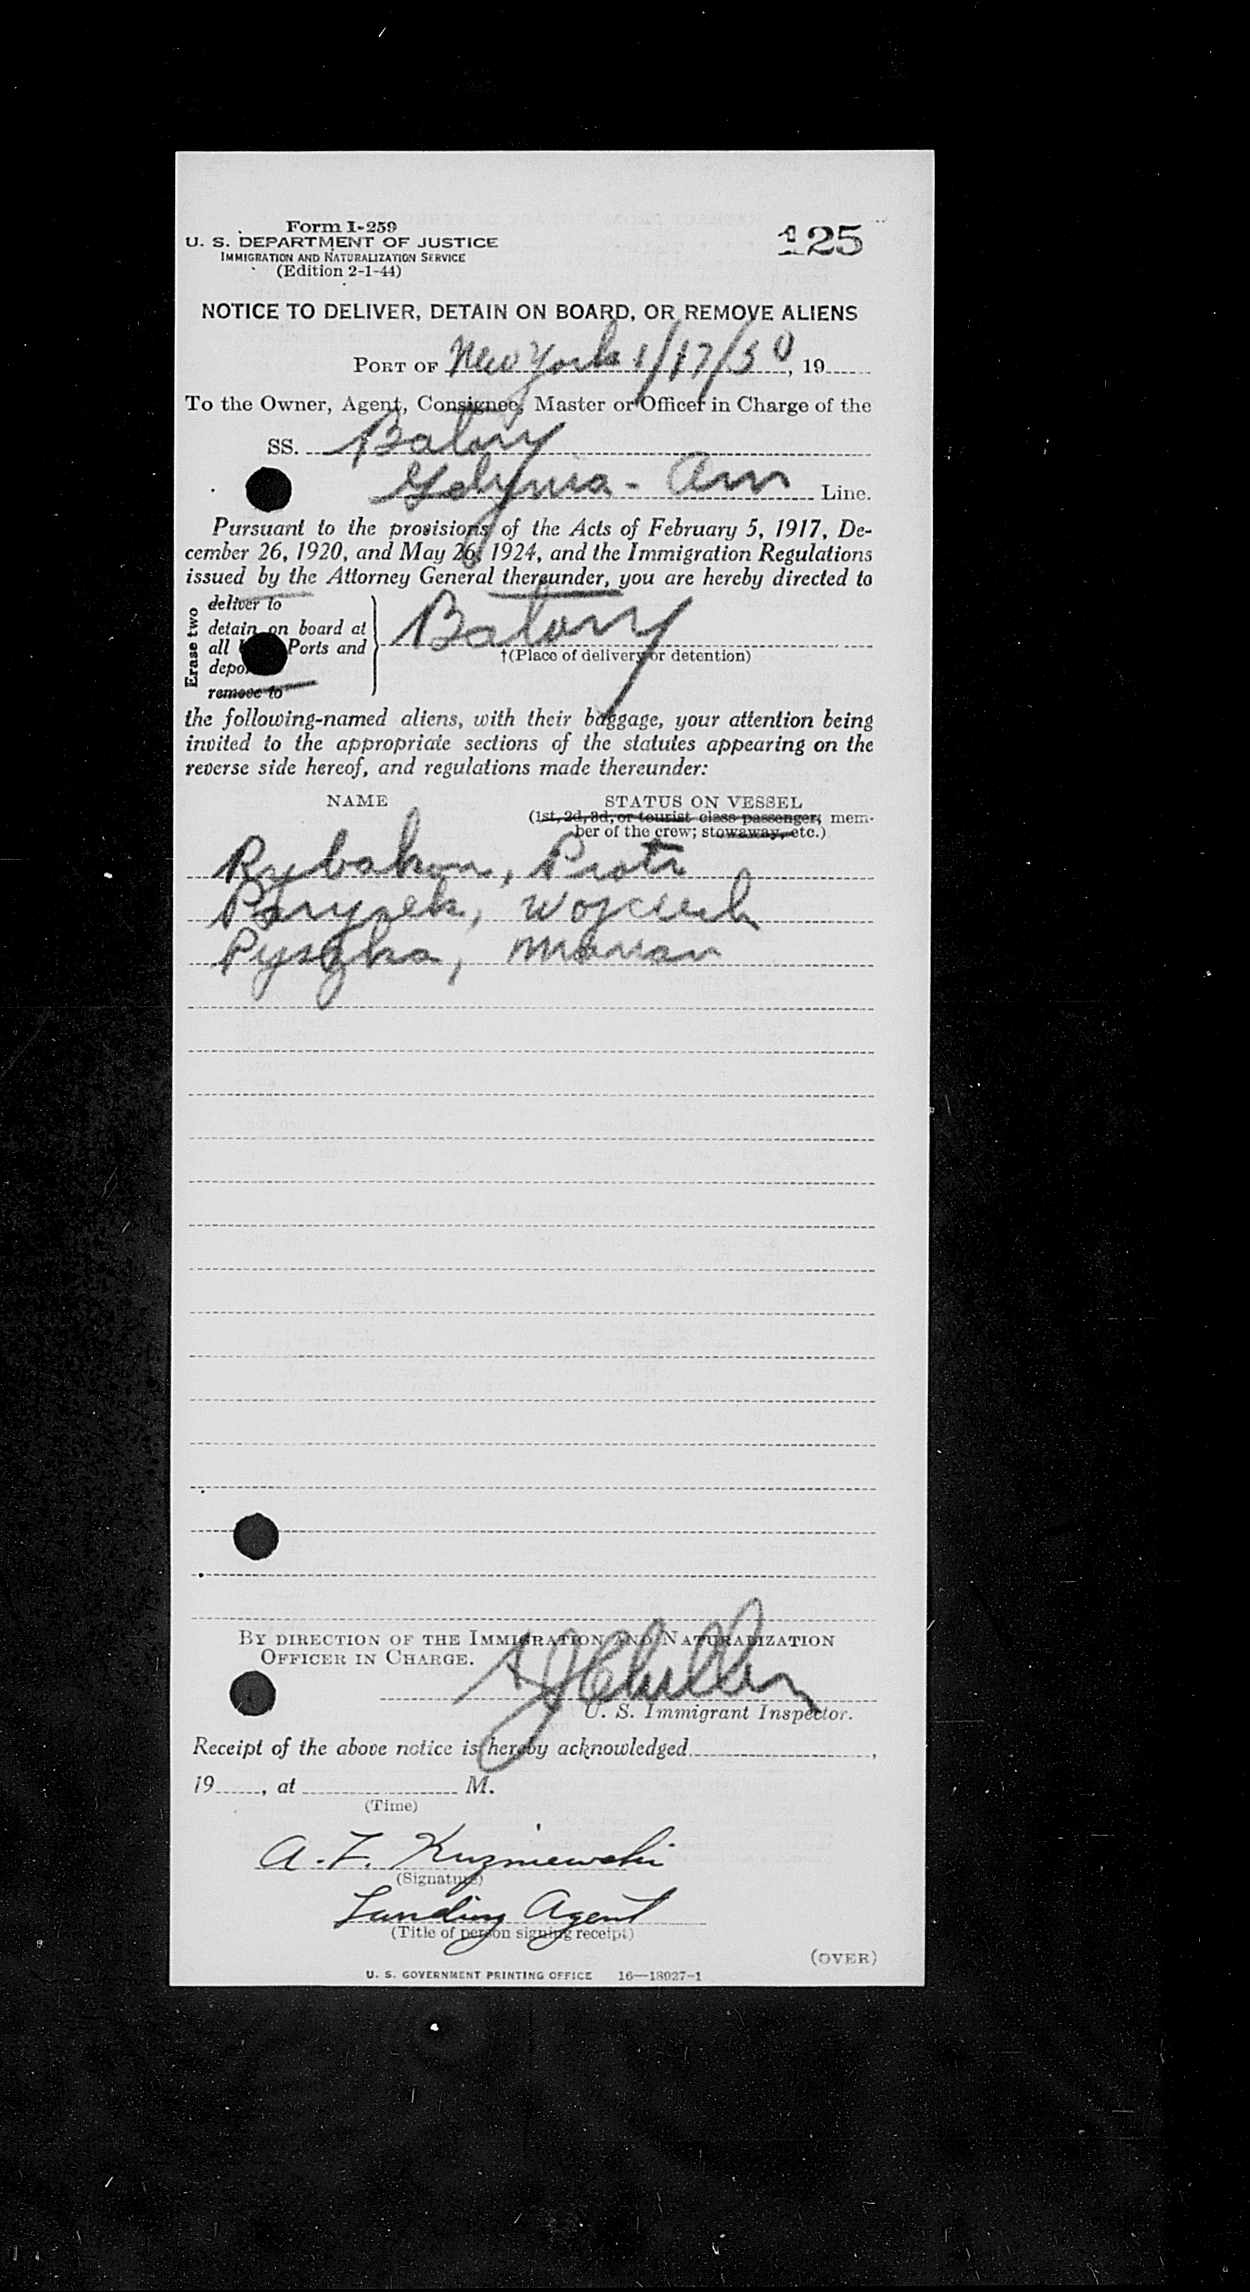 Form I-259
U. S. DEPARTMENT OF JUSTICE
IMMIGRATION AND NATURALIZATION SERVICE
(Edition 2-1-44)
125
NOTICE TO DELIVER, DETAIN ON BOARD, OR REMOVE ALIENS
PORT OF New York 1/17/50, 19
To the Owner, Agent, Consignee, Master or Officer in Charge of the
SS. Batory
Gdynia - Am Line.
Pursuant to the provisions of the Acts of February 5, 1917, De-
cember 26, 1920, and May 26, 1924, and the Immigration Regulations
issued by the Attorney General thereunder, you are hereby directed to
Erase two
deliver to
detain on board at
all Ports and
depo
remove to
Batory
†(Place of delivery or detention)
the following-named aliens, with their baggage, your attention being
invited to the appropriate sections of the statutes appearing on the
reverse side hereof, and regulations made thereunder:
NAME STATUS ON VESSEL
(1st, 2d, 3d, or tourist class passenger; mem-
ber of the crew; stowaway, etc.)
Piotr
Wojciech
Pyszka, Marian
BY DIRECTION OF THE IMMIGRATION AND NATURALIZATION
OFFICER IN CHARGE.
U. S. Immigrant Inspector.
Receipt of the above notice is hereby acknowledged,
19, at M.
(Time)
A. Z. Kuzniewski
(Signature)
Landing Agent
(Title of person signing receipt)
(OVER)
U. S. GOVERNMENT PRINTING OFFICE 16—18027-1